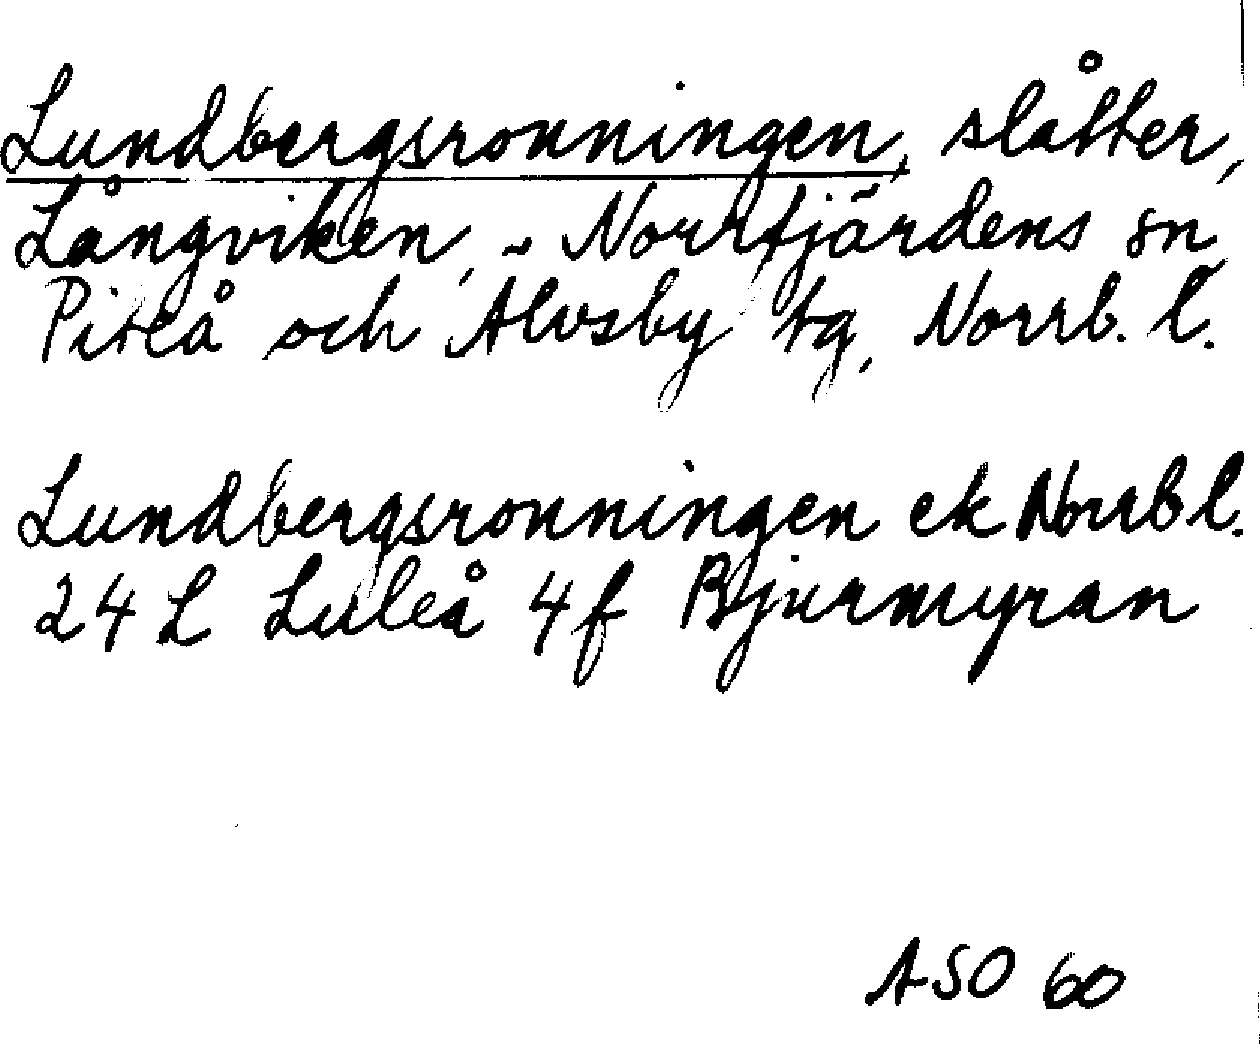 Lundbergsronningen, slåtter,
Långviken, Norrfjärdens sn,
Piteå och Älvsby tg, Norrb. l.
Lundbergsronningen ek Norrb l.
24 L Luleå 4f Bjurmyran
ASO 60